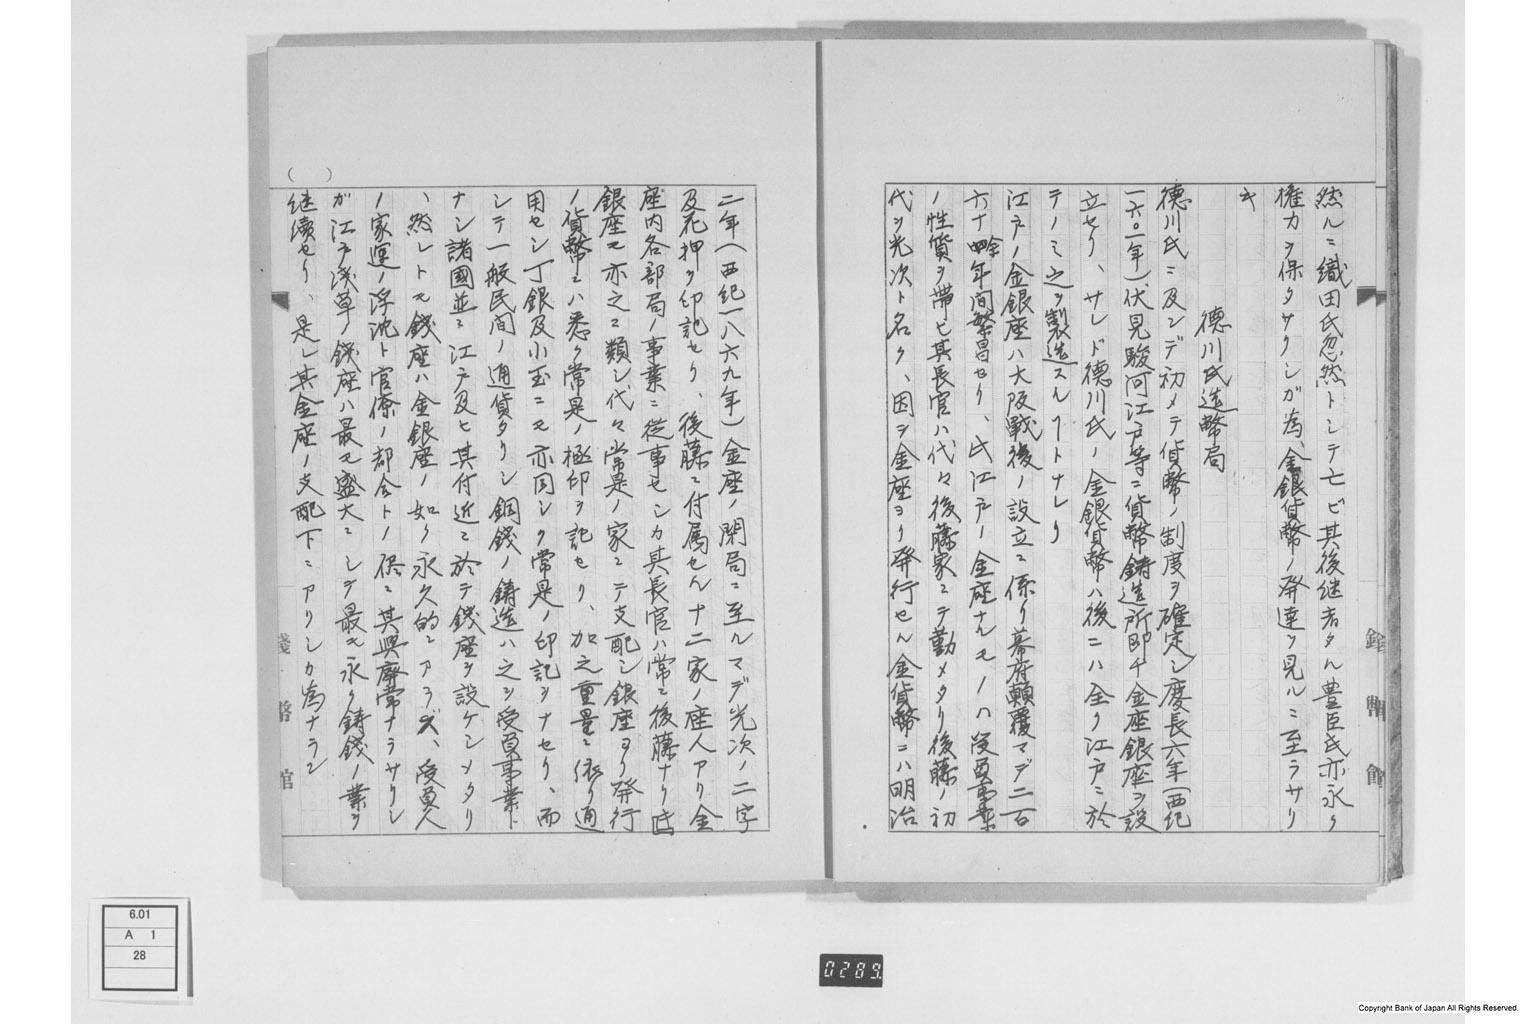 然ルニ織田氏忽然トシテ亡ビ其後継者タル豊臣氏亦永ク
権力ヲ保タサリシガ為、金銀貨幣ノ発達ヲ見ルニ至ラサリ
キ
徳川氏造幣局
徳川氏ニ及ンデ初メテ貨幣ノ制度ヲ確定シ慶長六年(西紀
一六〇一年)伏見駿河江戸等ニ貨幣鋳造所即チ金座銀座ヲ設
立セリ、サレド徳川氏ノ金銀貨幣ハ後ニハ全ク江戸ニ於
テノミ之ヲ製造スルヿトナレリ
江戸ノ金銀座ハ大阪戦後ノ設立ニ係リ幕府顛覆マデ二百
六十余年間繁昌セリ、氏江戸ノ金座ナルモノハ受負事業
ノ性質ヲ帯ビ其長官ハ代々後藤家ニテ勤メタリ後藤ノ初
代ヲ光次ト名ク、因ヲ金座ヨリ発行セル金貨幣ニハ明治
二年(西紀一八六九年)金座ノ閉局ニ至ルマデ光次ノ二字
及花押ヲ印記セリ、後藤ニ付属セル十二家ノ座人アリ金
座内各部局ノ事業ニ従事セシカ其長官ハ常ニ後藤ナリ
銀座モ亦之ニ類シ代々常是ノ家ニテ支配シ銀座ヨリ発行
ノ貨幣ニハ悉ク常是ノ極印ヲ記セリ、加之重量ニ依リ通
用セシ丁銀及小玉ニモ亦同シク常是ノ印記ヲナセリ、而
シテ一般民間ノ通貨タリシ銅銭ノ鋳造ハ之ヲ受負事業ト
ナシ諸國並ニ江戸及ヒ其付近ニ於テ銭座ヲ設ケシメタリ
、然レトモ銭座ハ金銀座ノ如ク永久的ニアラズ、受負人
ノ家運ノ浮沈ト官僚ノ都合トノ侭ニ其興廃常ナラサリシ
ガ江戸浅草ノ銭座ハ最モ盛大ニシテ最モ永ク鋳銭ノ業ヲ
継續セリ、是レ其金座ノ支配下ニアリシカ為ナラン
( )
銭幣館
6.01
A 1
28
0289
Copyright Bank of Japan All Rights Reserved.